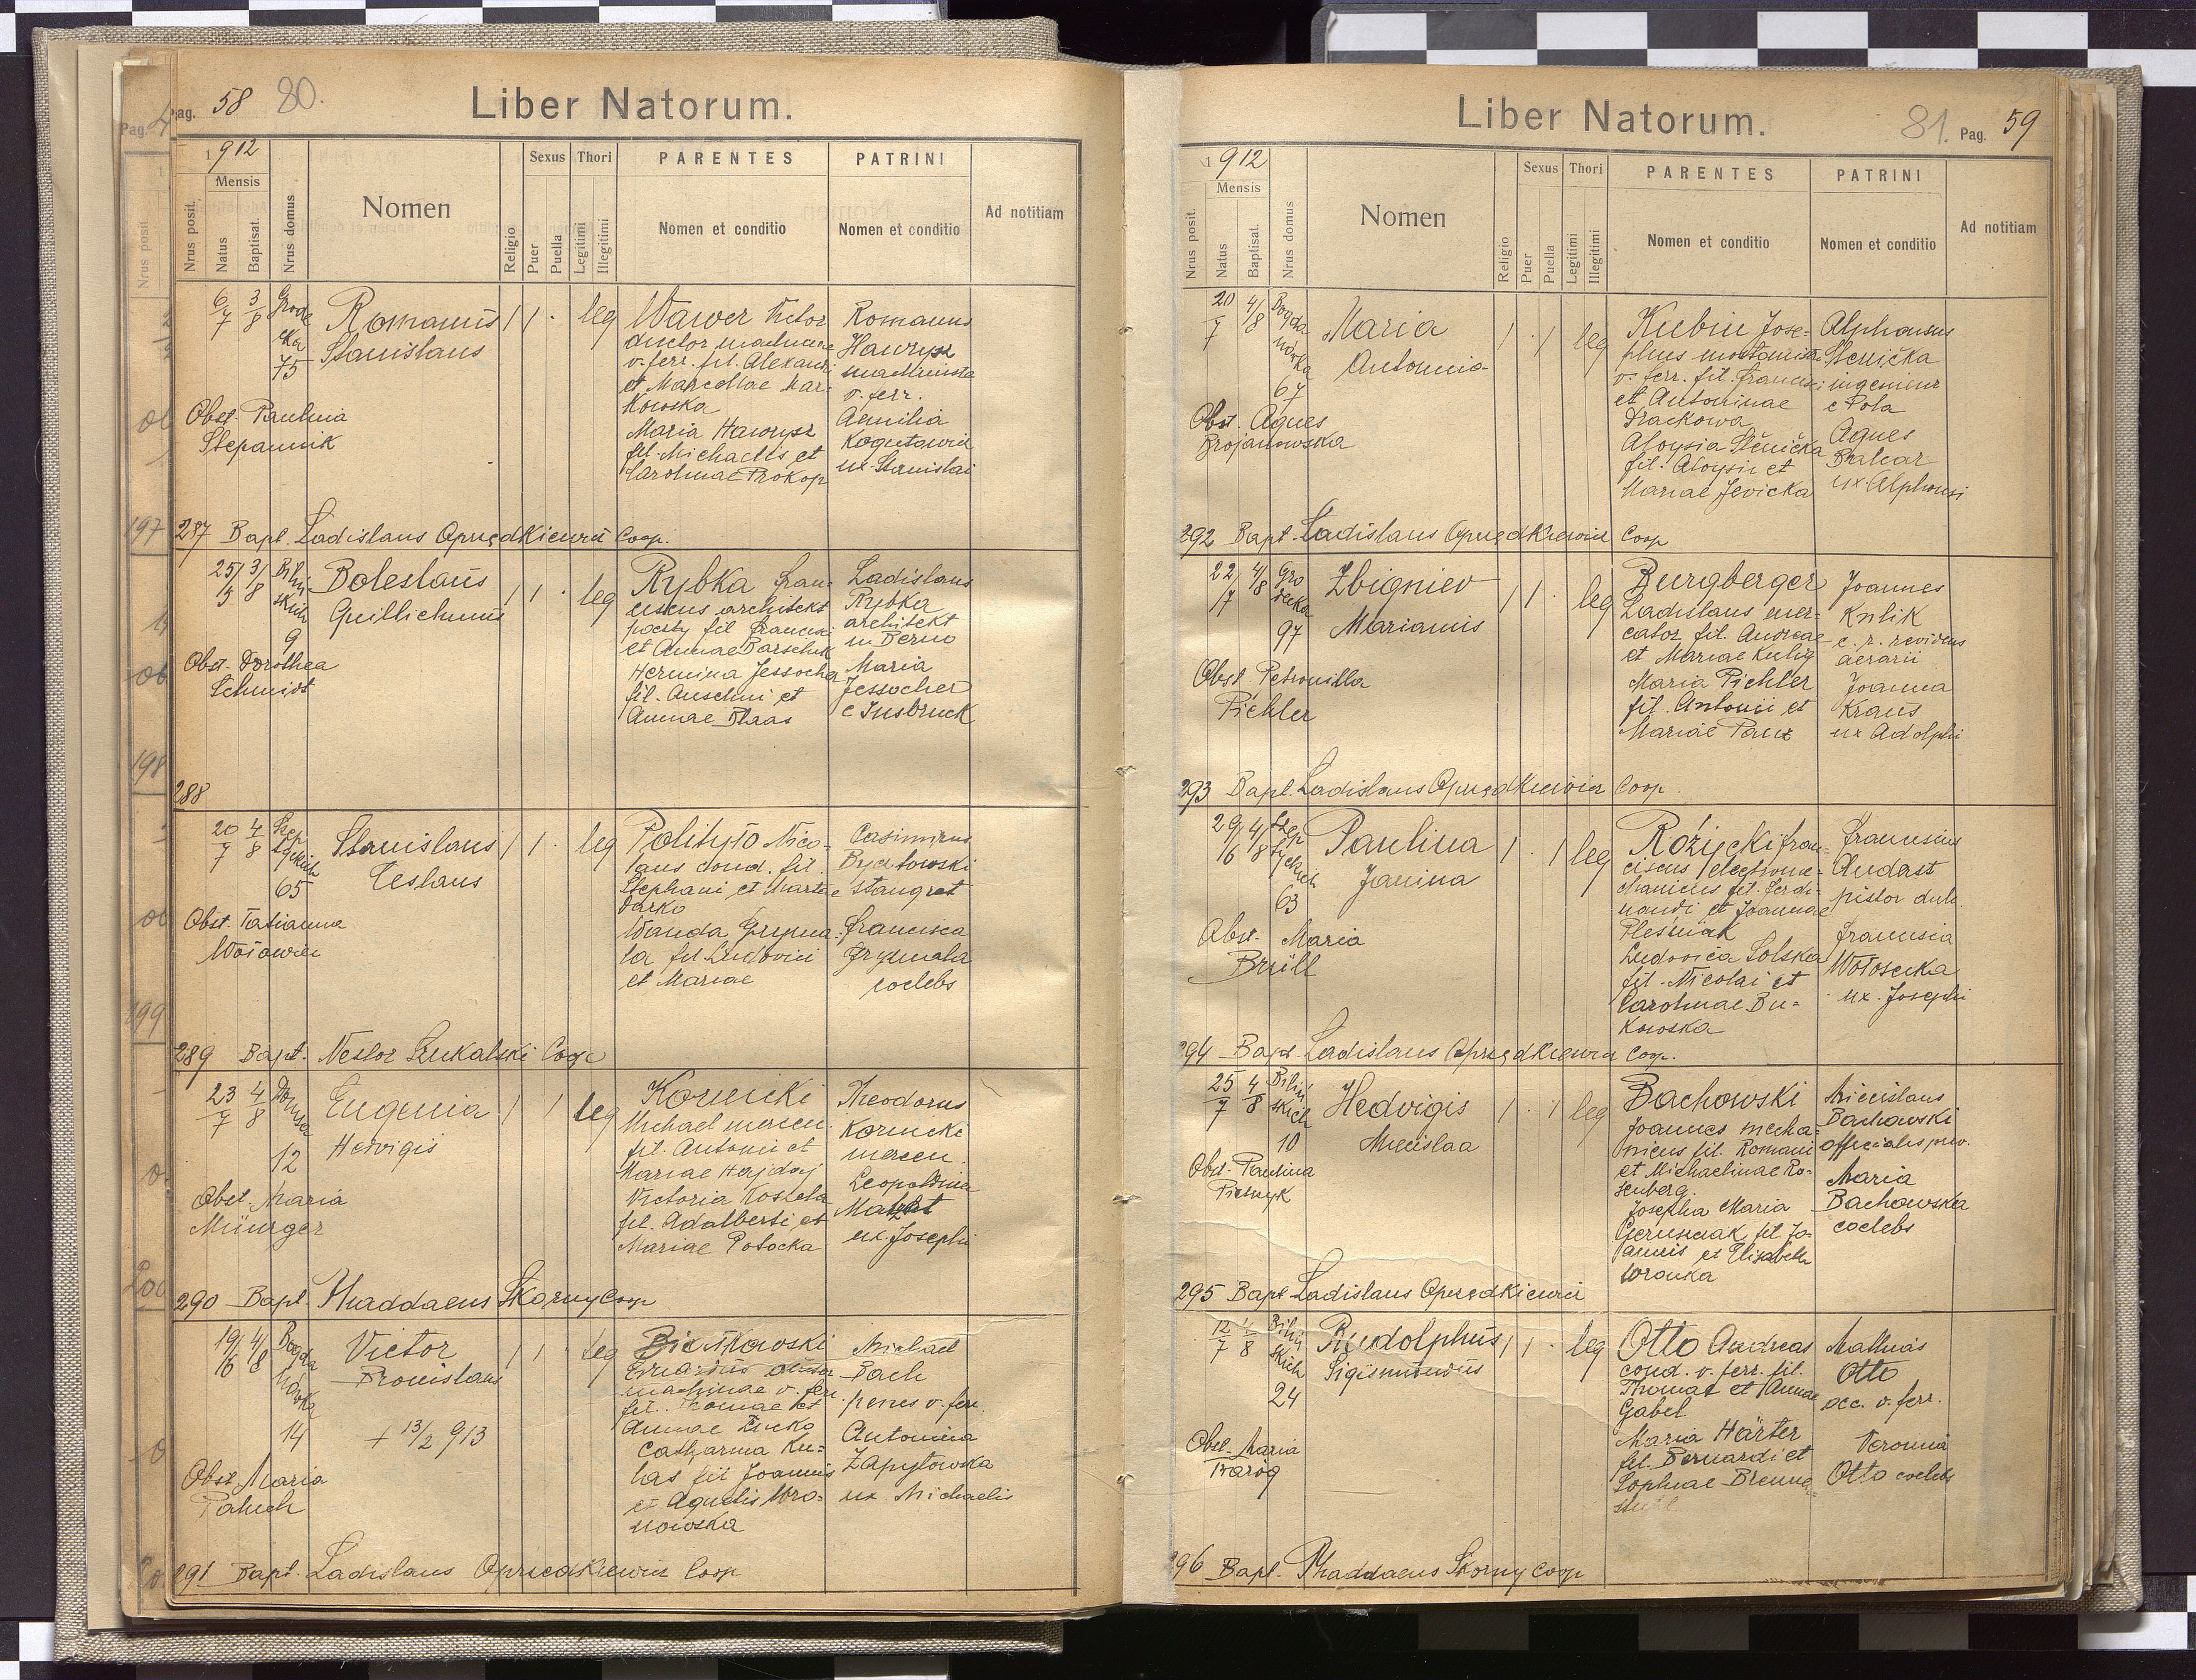 Pag. 58 80.
Liber Natorum.
1912
Mensis
Nrus posit.
Natus
Baptisat.
Nrus domus
Nomen
Religio
Sexus
Puer
Puella
Thori
Legitimi
Illegitimi
PARENTES
Nomen et conditio
PATRINI
Nomen et conditio
Ad notitiam
6/7 3/8
Grode
cka
75
Romanus
Stanislaus
1 1 · leg
Wawer Victor
ductor machinae
v. ferr. fil. Alexandri
et Marcellae Kar-
kowska
Maria Hawrysz
fil. Michaelis et
Carolinae Prokop
Romanus
Hawrysz
machinista
v. ferr.
Aemilia
Kogutowicz
ux. Stanislai
Obst. Paulina
Stepannik
287 Bapt. Ladislaus Oprzędkiewicz Coop.
25/5 3/8
Biliń
skich
9
Boleslaus
Guillielmus
1 1 · leg
Rybka Fran-
ciscus architekt
poczty fil Francisci
et Annae Barschik
Hermina Jessocher
fil. Anselmi et
Annae Plaas
Ladislaus
Rybka
architekt
in Berno
Maria
Jessocher
e Insbruck
Obst. Dorothea
Schmidt
288
20/7 4/8
Szep
tyckich
65
Stanislaus
Ceslaus
1 1 · leg
Polityło Nico-
laus cond. fil.
Stephani et Martae
Darko
Wanda Gryma-
la fil Ludovici
et Mariae
Casimirus
Bychowski
stangret
Francisca
Grzymala
coelebs
Obst. Tatianna
Wołowiec
289 Bapt. Nestor Szukalski Coop
23/7 4/8
12
Eugenia
Hedvigis
1 · 1 leg
Kornicki
Michael mercen.
fil. Antonii et
Mariae Hajdaj
Victoria Koszela
fil. Adalberti et
Mariae Potocka
Theodorus
Kornicki
mercen.
Leopoldina
ux. Josephi
Obst. Maria
Münrger
290 Bapt. Thaddaeus Skorny Coop
19/6 4/8
Bogda
nówka
14
Victor
Bronislaus
+ 13/2 913
1 1 · leg
machinae v. ferr.
fil. Thomae et
Annae
Catharina Ku-
las fil Joannis
et Agnetis Wro-
nowska
Michael
Bach
penes v. ferr.
Antonina
Zapytowska
ux. Michaelis
Obst. Maria
Paluch
291 Bapt. Ladislaus Oprzędkiewicz Coop
Liber Natorum.
81. Pag. 59
1912
Mensis
Nrus posit.
Natus
Baptisat.
Nrus domus
Nomen
Religio
Sexus
Puer
Puella
Thori
Legitimi
Illegitimi
PARENTES
Nomen et conditio
PATRINI
Nomen et conditio
Ad notitiam
20/7 4/8
Bogda
nówka
67
Maria
Antonia
1 · 1 leg
Kubin Jose-
phus
v. ferr. fil. Francisci
et Antoninae
Drackowa
Aloysia Stěnička
fil. Aloysii et
Mariae Jevicka
Alphonsus
Stenička
ingenieur
e Pola
Agnes
ux. Alphonsi
Obst. Agnes
Brojanowska
292 Bapt. Ladislaus Oprzędkiewicz Coop
22/7 4/8
Gro
decka
97
Zbigniev
Marianus
1 1 · leg
Burgberger
Ladislaus mer-
cator fil. Andreae
et Mariae Kulig
Maria Pichler
fil. Antonii et
Mariae Panz
Joannes
Krilik
c. r. revidens
aerarii
Joanna
Kraus
ux Adolphi
Obst. Petronilla
Pichler
293 Bapt. Ladislaus Oprzędkiewicz Coop.
29/6 4/8
Szep
tyckich
63
Paulina
Janina
1 · 1 leg
Rożycki Fran-
ciscus electrome-
chanicus fil. Ferdi-
nandi et Joannae
Pleśniak
Ludovica Solska
fil. Nicolai et
Carolinae Bu-
kowska
Franciscus
Andast
pistor dulc.
Francisca
Wołoszcka
ux. Josephi
Obst. Maria
Brüll
294 Bapt. Ladislaus Oprzędkiewicz Coop.
25/7 4/8
Biliń
skich
10
Hedvigis
Miecislaa
1 · 1 leg
Bachowski
Joannes mecha-
nicus fil. Romani
et Michaelinae Ro-
senberg.
Josepha Maria
fil Jo-
annis et Elisabeth
Wronka
Miecislaus
Bachowski
officialis priv.
Maria
Bachowska
coelebs
Obst. Paulina
295 Bapt. Ladislaus Oprzędkiewicz
12/7 4/8
Biliń
skich
24
Rudolphus
Sigismundus
1 1 · leg
Otto Andreas
cond. v. ferr. fil.
Thomae et Annae
Gabel
Maria Härter
fil. Bernardi et
Sophiae Brenne-
Mathias
Otto
occ. v. ferr.
Veronica
Otto coelebs
Obst. Maria
Baróg
296 Bapt. Thaddaeus Skorny Coop